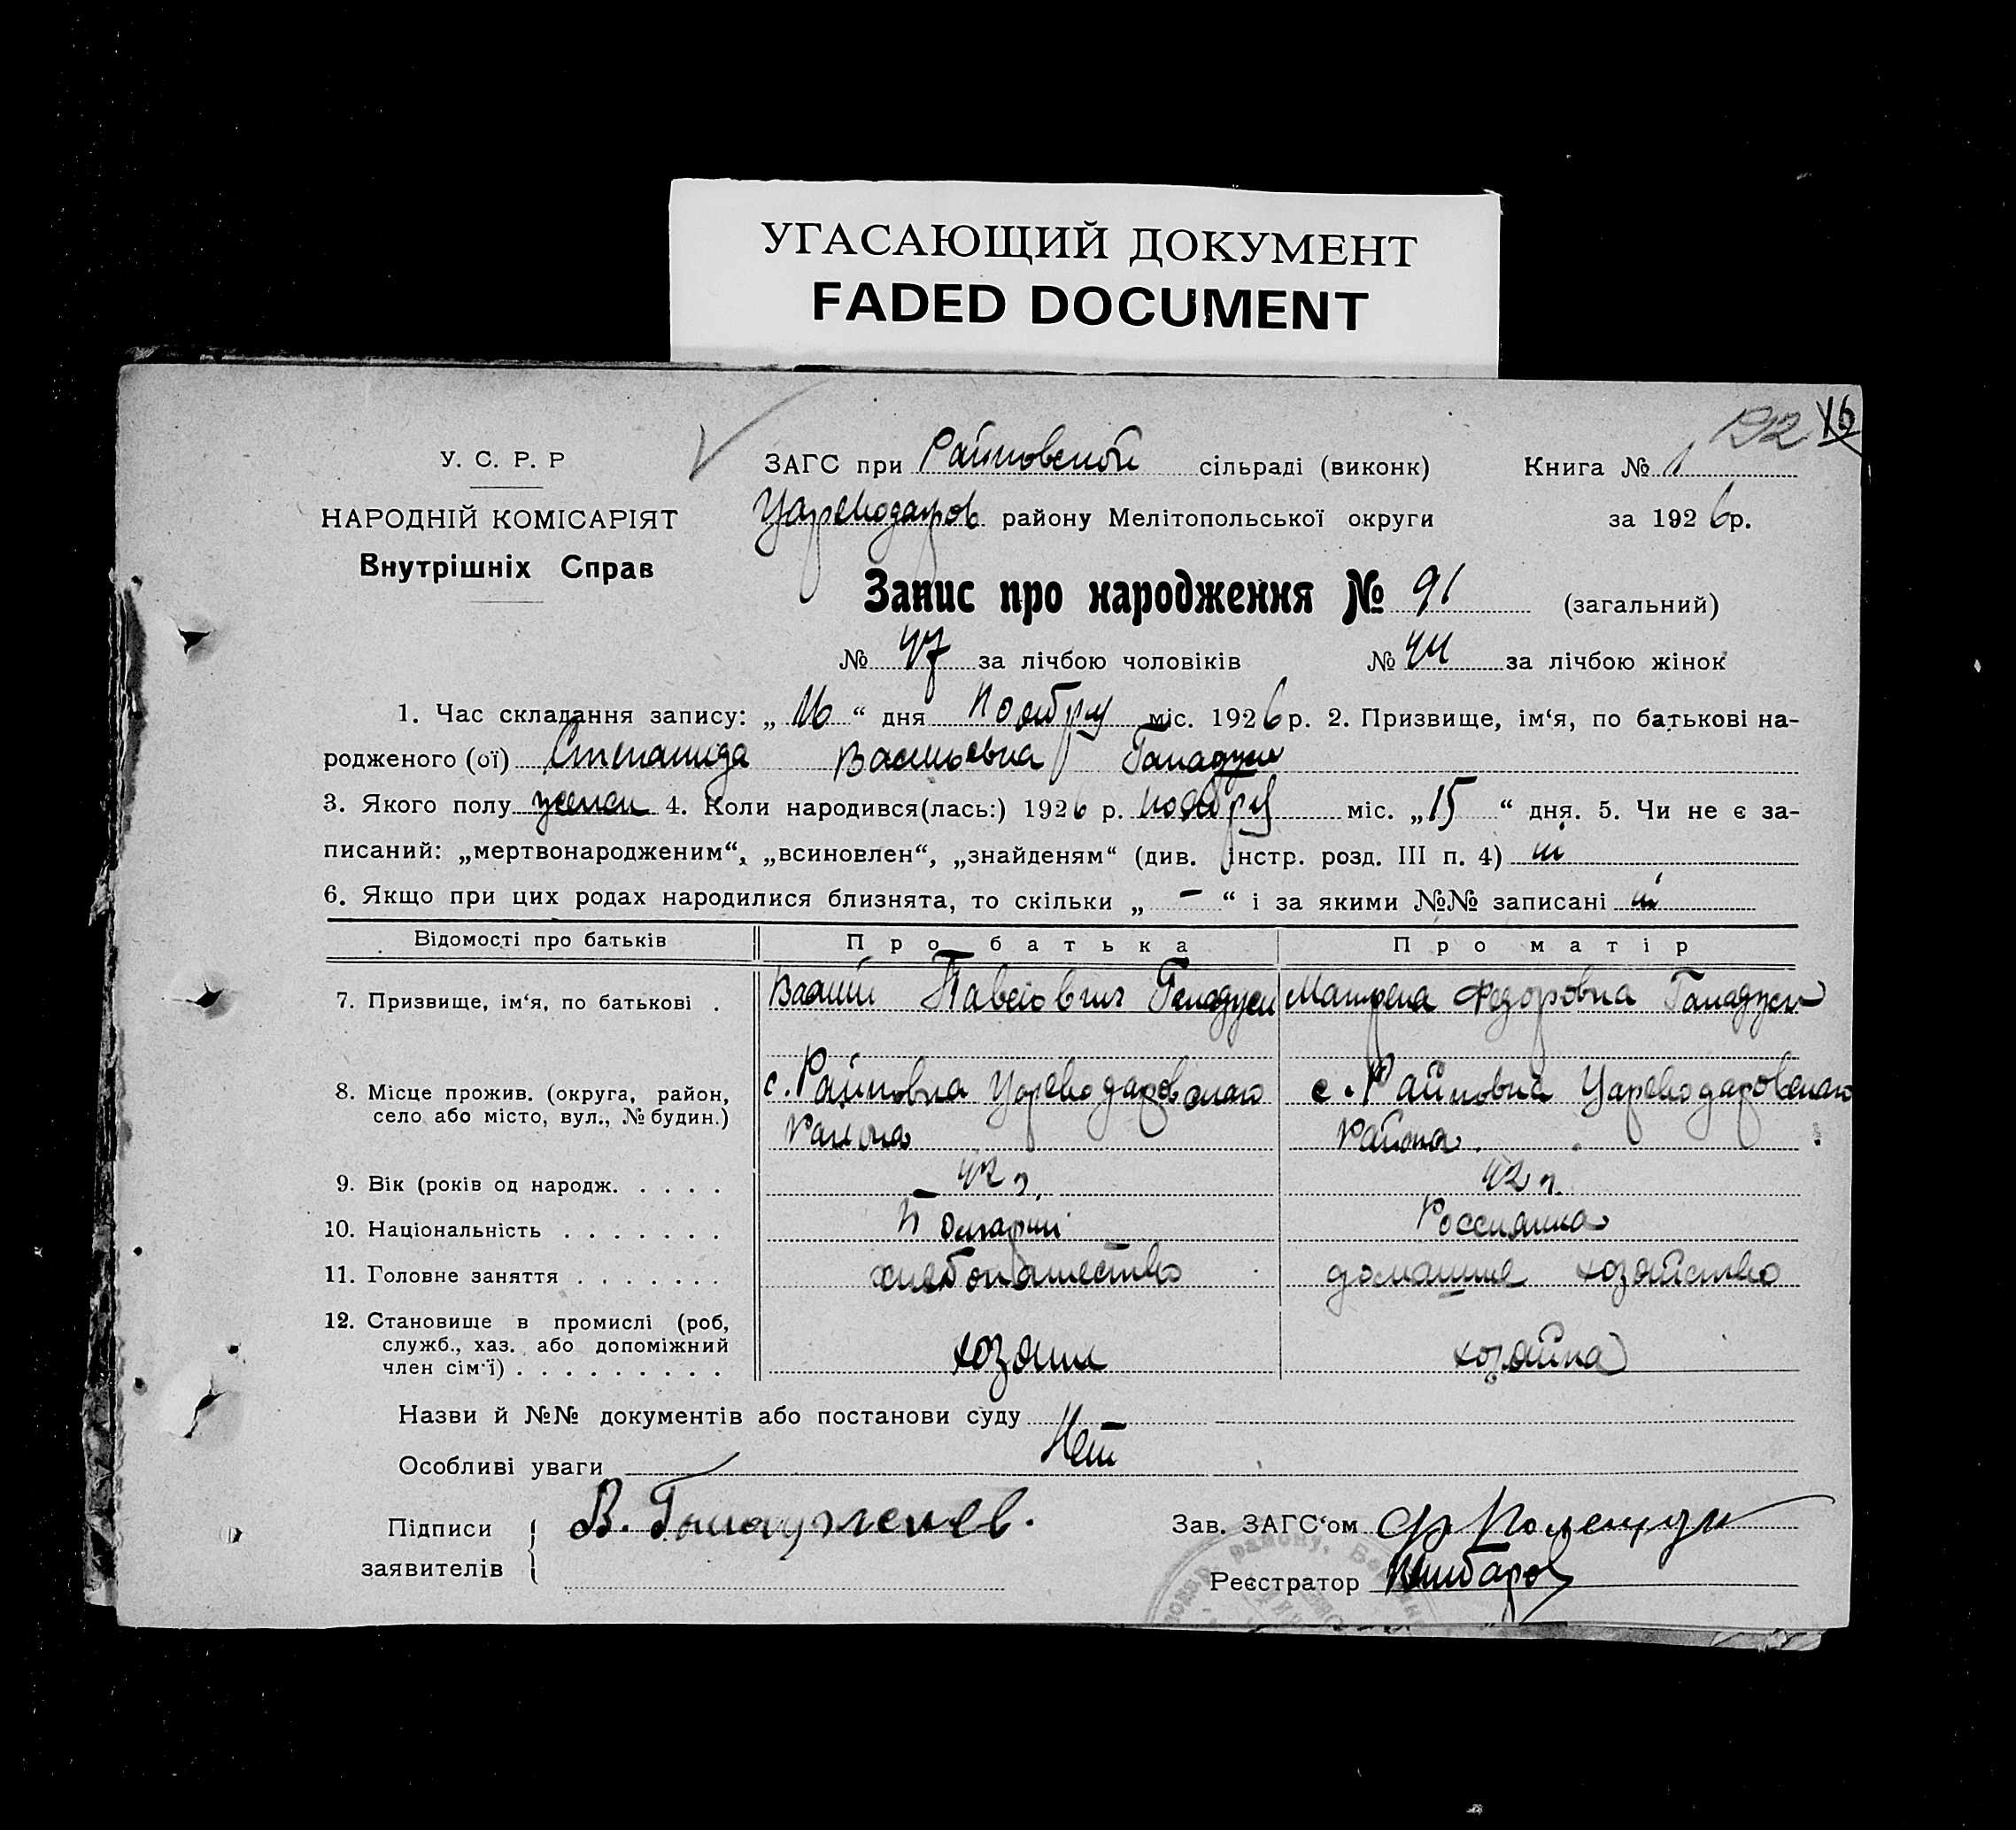 УГАСАЮЩИЙ ДОКУМЕНТ
FADED DOCUMENT
192 16
У. С. Р. Р
НАРОДНІЙ КОМІСАРІЯТ
Внутрішніх Справ
ЗАГС при Райновской сільраді (виконк) Книга № 1
Цареводаров району Мелітопольської округи за 1926р.
Запис про народження № 91 (загальний)
№ 47 за лічбою чоловіків № 44 за лічбою жінок
1. Час складання запису: „16“ дня Ноября міс. 1926р. 2. Призвище, ім‘я, по батькові на-
родженого (ої) Степанида Васильевна
3. Якого полу женск 4. Коли народився(лась:) 1926 р. ноября міс. „15“ дня. 5. Чи не є за-
писаний: „мертвонародженим“, „всиновлен“, „знайденям“ (див. інстр. розд. III п. 4)
6. Якщо при цих родах народилися близнята, то скільки „ – “ і за якими №№ записані
Відомості про батьків Про батька Про матір
7. Призвище, ім‘я, по батькові . Васили Павлович Матрена Федоровна
8. Місце прожив. (округа, район, с. Райновка Цареводаровскаго с. Райновка Цареводаровскаго
село або місто, вул., № будин.) Района Района
9. Вік (років од народж. . . . . 42 г. 42 г.
10. Національність . . . . . . . Болгарин Россиянка
11. Головне заняття . . . . . . . хлебопашество домашне хозяйство
12. Становище в промислі (роб,
служб., хаз. або допоміжний
член сім‘ї) . . . . . . . . . хозяин хозяйка
Назви й №№ документів або постанови суду
Особливі уваги Нет
Підписи В.
заявителів
Зав. ЗАГС‘ом
Реєстратор
району,